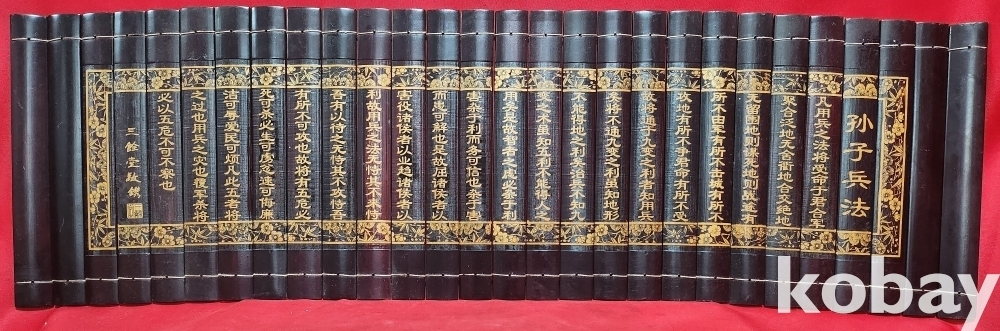 孙子兵法
凡用兵之法将受命于君合军
聚合圮地无舍衢地合交绝地
无留围地则谋死地则战途有
所不由军有所不击城有所不
攻地有所不争君命有所不受
故将通于九变之利者知用兵
矣将不通九变之利虽知地形
不能得地之利矣治兵不知九
变之术虽知五利不能得人之
用矣是故智者之虑必杂于利
害杂于利而务可信也杂于害
而患可解也是故屈诸侯者以
害役诸侯者以业趋诸侯者以
利故用兵之法无恃其不来恃
吾有以待之无恃其不攻恃吾
有所不可攻也故将有五危必
死可杀必生可虏忿速可侮廉
洁可辱爱民可烦凡此五者将
之过也用兵之灾也覆军杀将
必以五危不可不察也
三餘堂敬鐫
kobay